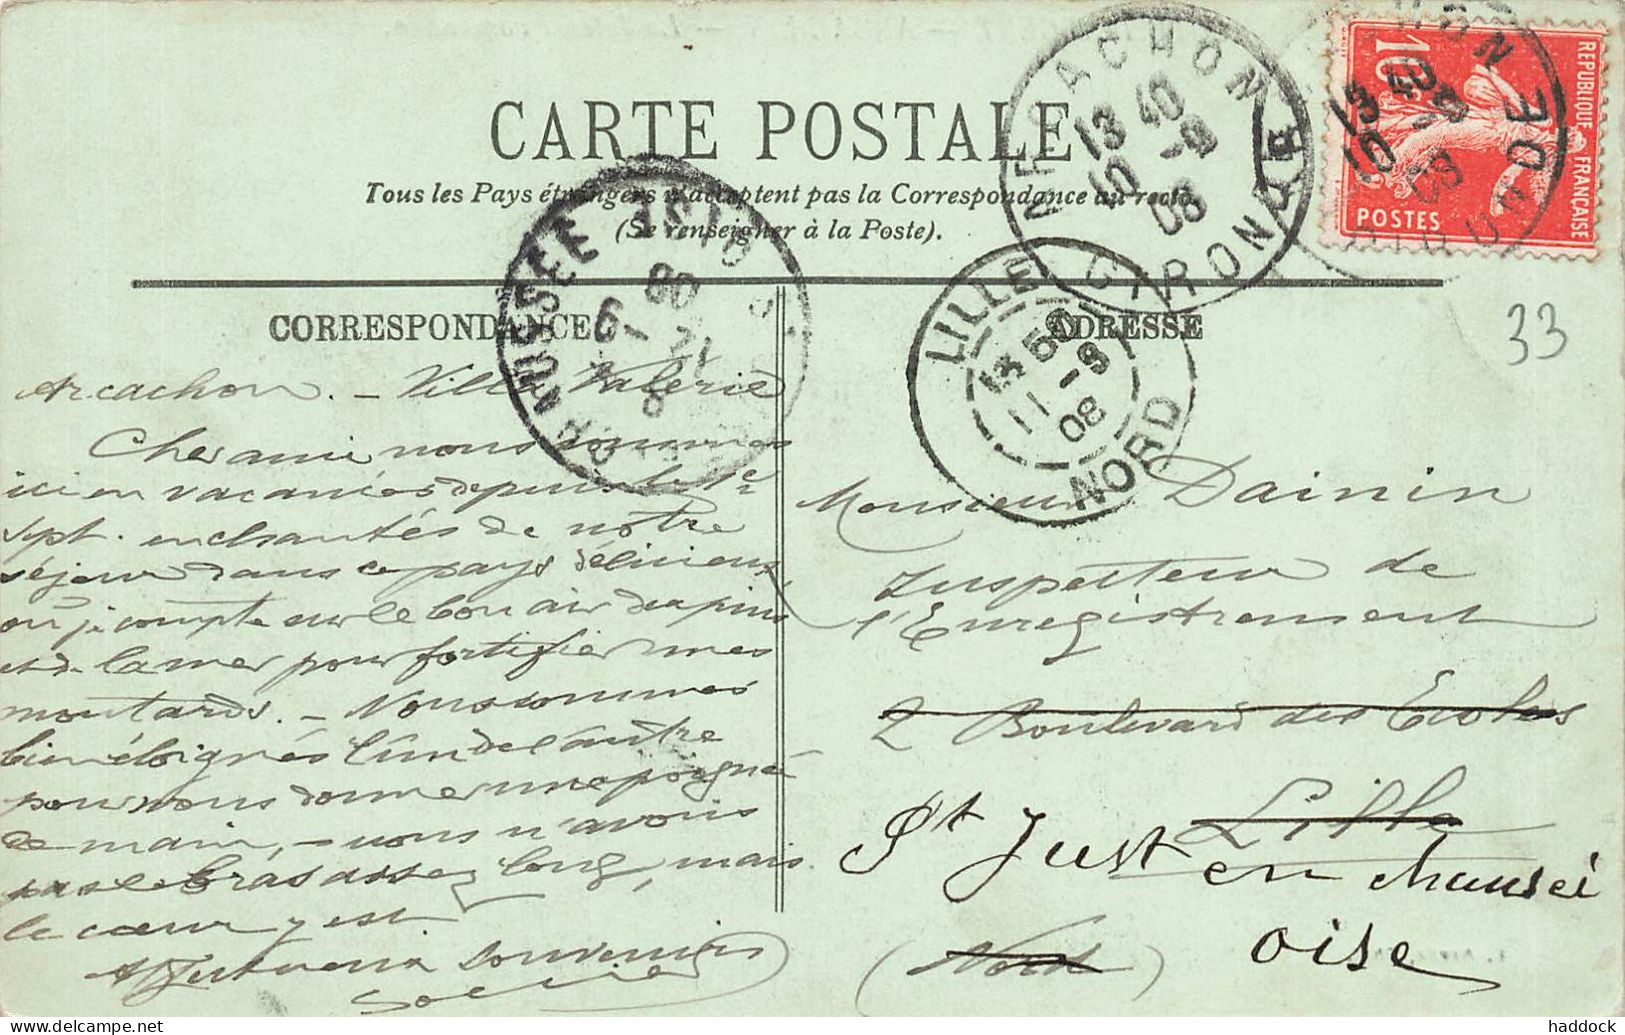 CARTE POSTALE
Tous les Pays étrangers n'acceptent pas la Correspondance au recto
(Se renseigner à la Poste).
CORRESPONDANCE
Arcachon. — Villa Valérie
Cher ami nous sommes
ici en vacances depuis le 1er
Sept. enchantés de notre
séjour dans ce pays délicieux
où je compte sur le bon air des pins
et de la mer pour fortifier mes
moutards. — Nous sommes
bien éloignés l'un de l'autre
pour nous donner une poignée
de main, — nous n'avons
pas le bras assez long, mais
le cœur y est
Affectueux souvenirs
ADRESSE
Monsieur Dainin
Inspecteur de
l'Enregistrement
2 Boulevard des Écoles
Lille
St Just en chaussée
(Nord)
oise
33
ARCACHON
GIRONDE
13 40
10 -9
08
LILLE
NORD
13 50
11 -9
08
REPUBLIQUE FRANÇAISE
10
POSTES
13 40
10 -9
08
GIRONDE
CHAUSSEE
OISE
haddock